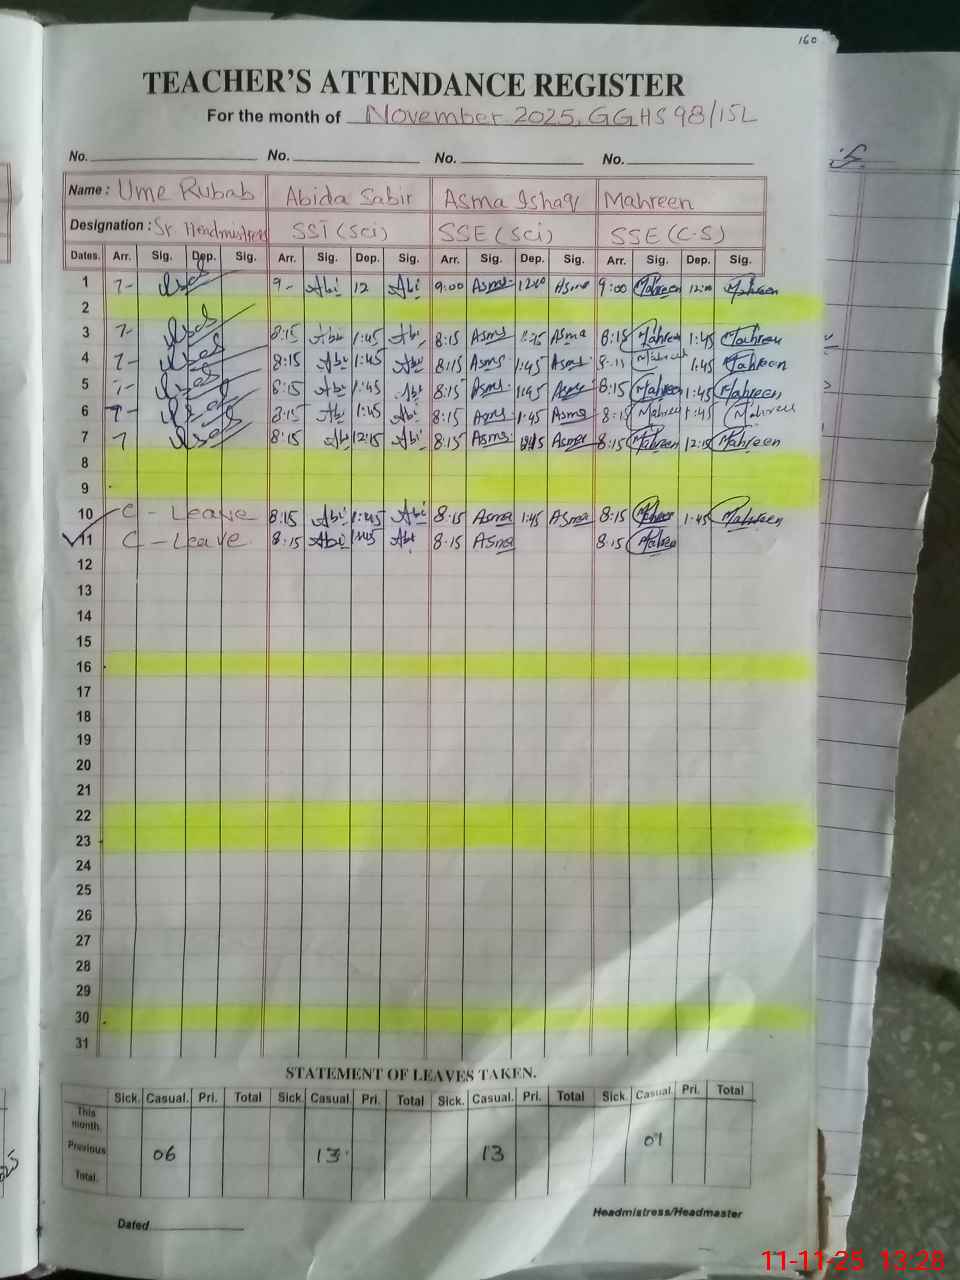 160
TEACHER'S ATTENDANCE REGISTER
For the month of November 2025, GGHS 98/15L
No. No. No. No.
Name : Ume Rubab Abida Sabir Asma Ishaq Mahreen
Designation : Sr. Headmistress SST (Sci) SSE (Sci) SSE (C.S)
Dates. Arr. Sig. Dep. Sig. Arr. Sig. Dep. Sig. Arr. Sig. Dep. Sig. Arr. Sig. Dep. Sig.
1 7- 9- Abi 12 Abi 9:00 Asma 12:00 Asma 9:00 Mahreen 12:00 Mahreen
2
3 7- 8:15 Abi 1:45 Abi 8:15 Asma Asma 8:15 Mahreen 1:45 Mahreen
4 7- 8:15 Abi 1:45 Abi 8:15 Asma 1:45 Asma Mahreen 1:45 Mahreen
5 7- 8:15 Abi 1:45 Abi 8:15 Asma 1:45 Asma 8:15 Mahreen 1:45 Mahreen
6 7- 8:15 Abi 1:45 Abi 8:15 Asma 1:45 Asma 8:15 Mahreen 1:45 Mahreen
7 7 8:15 Abi 12:15 Abi 8:15 Asma Asma 8:15 Mahreen 12:15 Mahreen
8
9
10 C - Leave 8:15 Abi 1:45 Abi 8:15 Asma 1:45 Asma 8:15 Mahreen 1:45 Mahreen
11 C - Leave 8:15 Abi 1:45 Abi 8:15 Asma 8:15 Mahreen
12
13
14
15
16
17
18
19
20
21
22
23
24
25
26
27
28
29
30
31
STATEMENT OF LEAVES TAKEN.
Sick. Casual. Pri. Total Sick. Casual. Pri. Total Sick. Casual. Pri. Total Sick. Casual. Pri. Total
This month.
Previous 06 13 13 01
Total.
Dated Headmistress/Headmaster
11-11-25 13:28